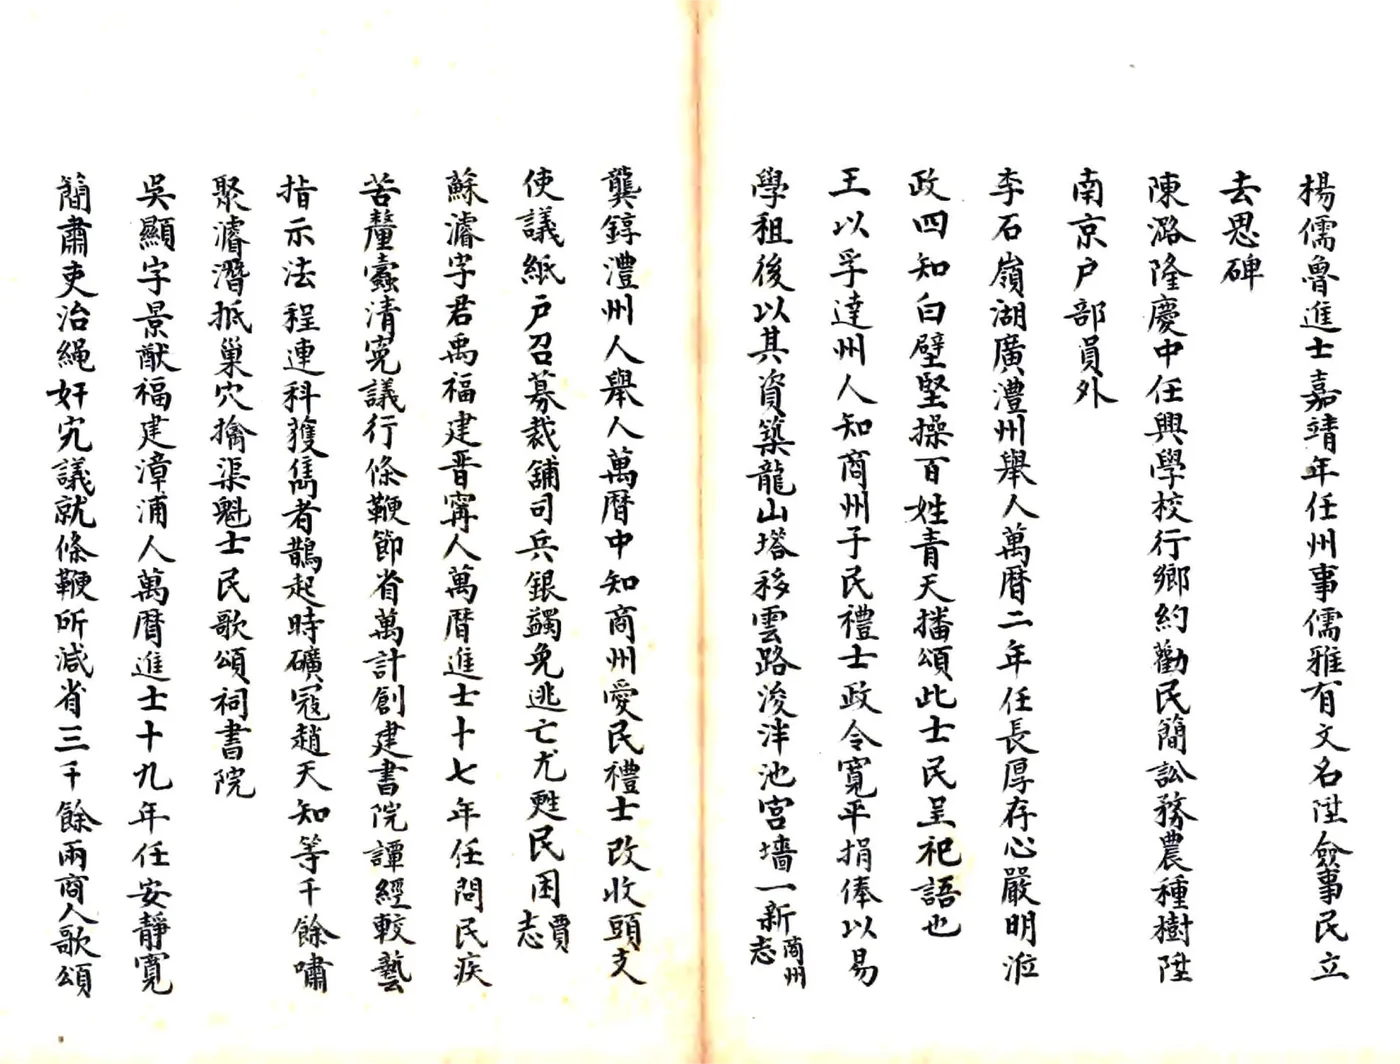 楊儒魯進士嘉靖年任州事儒雅有文名陞僉事民立
去思碑
陳潞隆慶中任興學校行鄉約勸民簡訟務農種樹陞
南京户部員外
李石嶺湖廣澧州舉人萬曆二年任長厚存心嚴明涖
政四知白璧堅操百姓青天播頌此士民呈祀語也
王以孚達州人知商州子民禮士政令寬平捐俸以易
學租後以其資築龍山塔移雲路浚泮池宮墻一新商州志
龔錞澧州人舉人萬曆中知商州愛民禮士改收頭支
使議紙户召募裁鋪司兵銀蠲免逃亡尤甦民困賈志
蘇濬字君禹福建晋寗人萬曆進士十七年任問民疾
苦釐蠹清寃議行條鞭節省萬計創建書院譚經較藝
指示法程連科獲雋者鵲起時礦寇趙天知等千餘嘯
聚濬潛抵巢穴擒渠魁士民歌頌祠書院
吳顯字景猷福建漳浦人萬曆進士十九年任安靜寬
簡肅吏治繩奸宄議就條鞭所減省三千餘兩商人歌頌